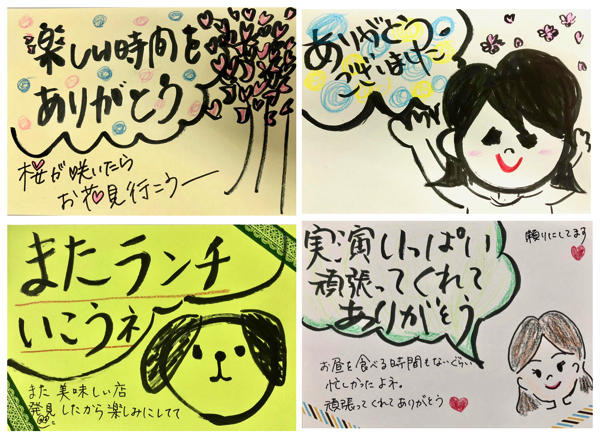 楽しい時間を
ありがとう
桜が咲いたら
お花見行こうー
ありがとう
ございました
またランチ
いこうネ
また美味しい店
発見したから楽しみにしてて
実演いっぱい
頑張ってくれて
ありがとう
頼りにしてます
お昼を食べる時間もないぐらい
忙しかったよネ。
頑張ってくれてありがとう